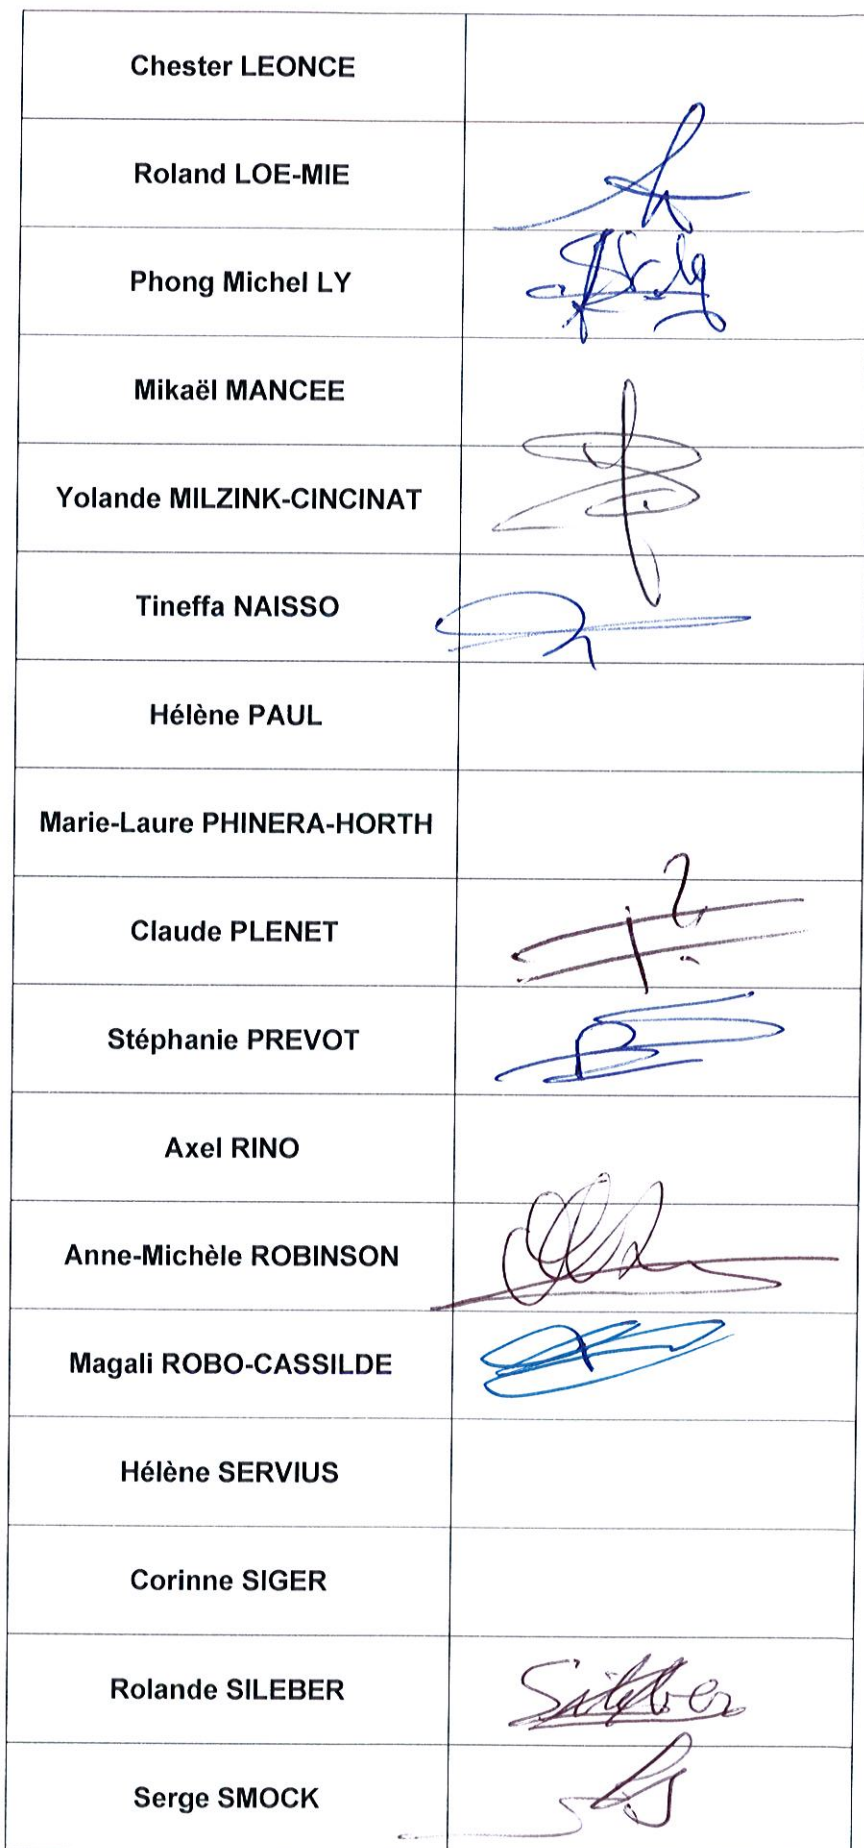 Chester LEONCE
Roland LOE-MIE
Phong Michel LY
Mikaël MANCEE
Yolande MILZINK-CINCINAT
Tineffa NAISSO
Hélène PAUL
Marie-Laure PHINERA-HORTH
Claude PLENET
Stéphanie PREVOT
Axel RINO
Anne-Michèle ROBINSON
Magali ROBO-CASSILDE
Hélène SERVIUS
Corinne SIGER
Rolande SILEBER
Serge SMOCK